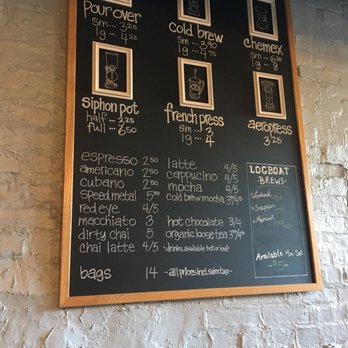 pour over
sm ... 3.25
lg ... 4.25
cold brew
sm ... 3.90
lg ... 4.90
chemex
sm ... 6.50
lg ... 8
siphon pot
half ... 3.25
full ... 6.50
french press
sm ... 3
lg ... 4
aeropress
3.25
espresso 2.50
americano 2.50
cubano 2.50
speed metal 5.50
red eye 4/5
macchiato 3
dirty chai 5
chai latte 4/5
bags 14
latte 4/5
cappucino 4/5
mocha 4/5
cold brew mocha
hot chocolate 3/4
organic loose tea
*drinks available hot or iced*
-all prices incl. sales tax-
LOGBOAT
-BREWS-
Snapper
Mamoot
Available Mon-Sat